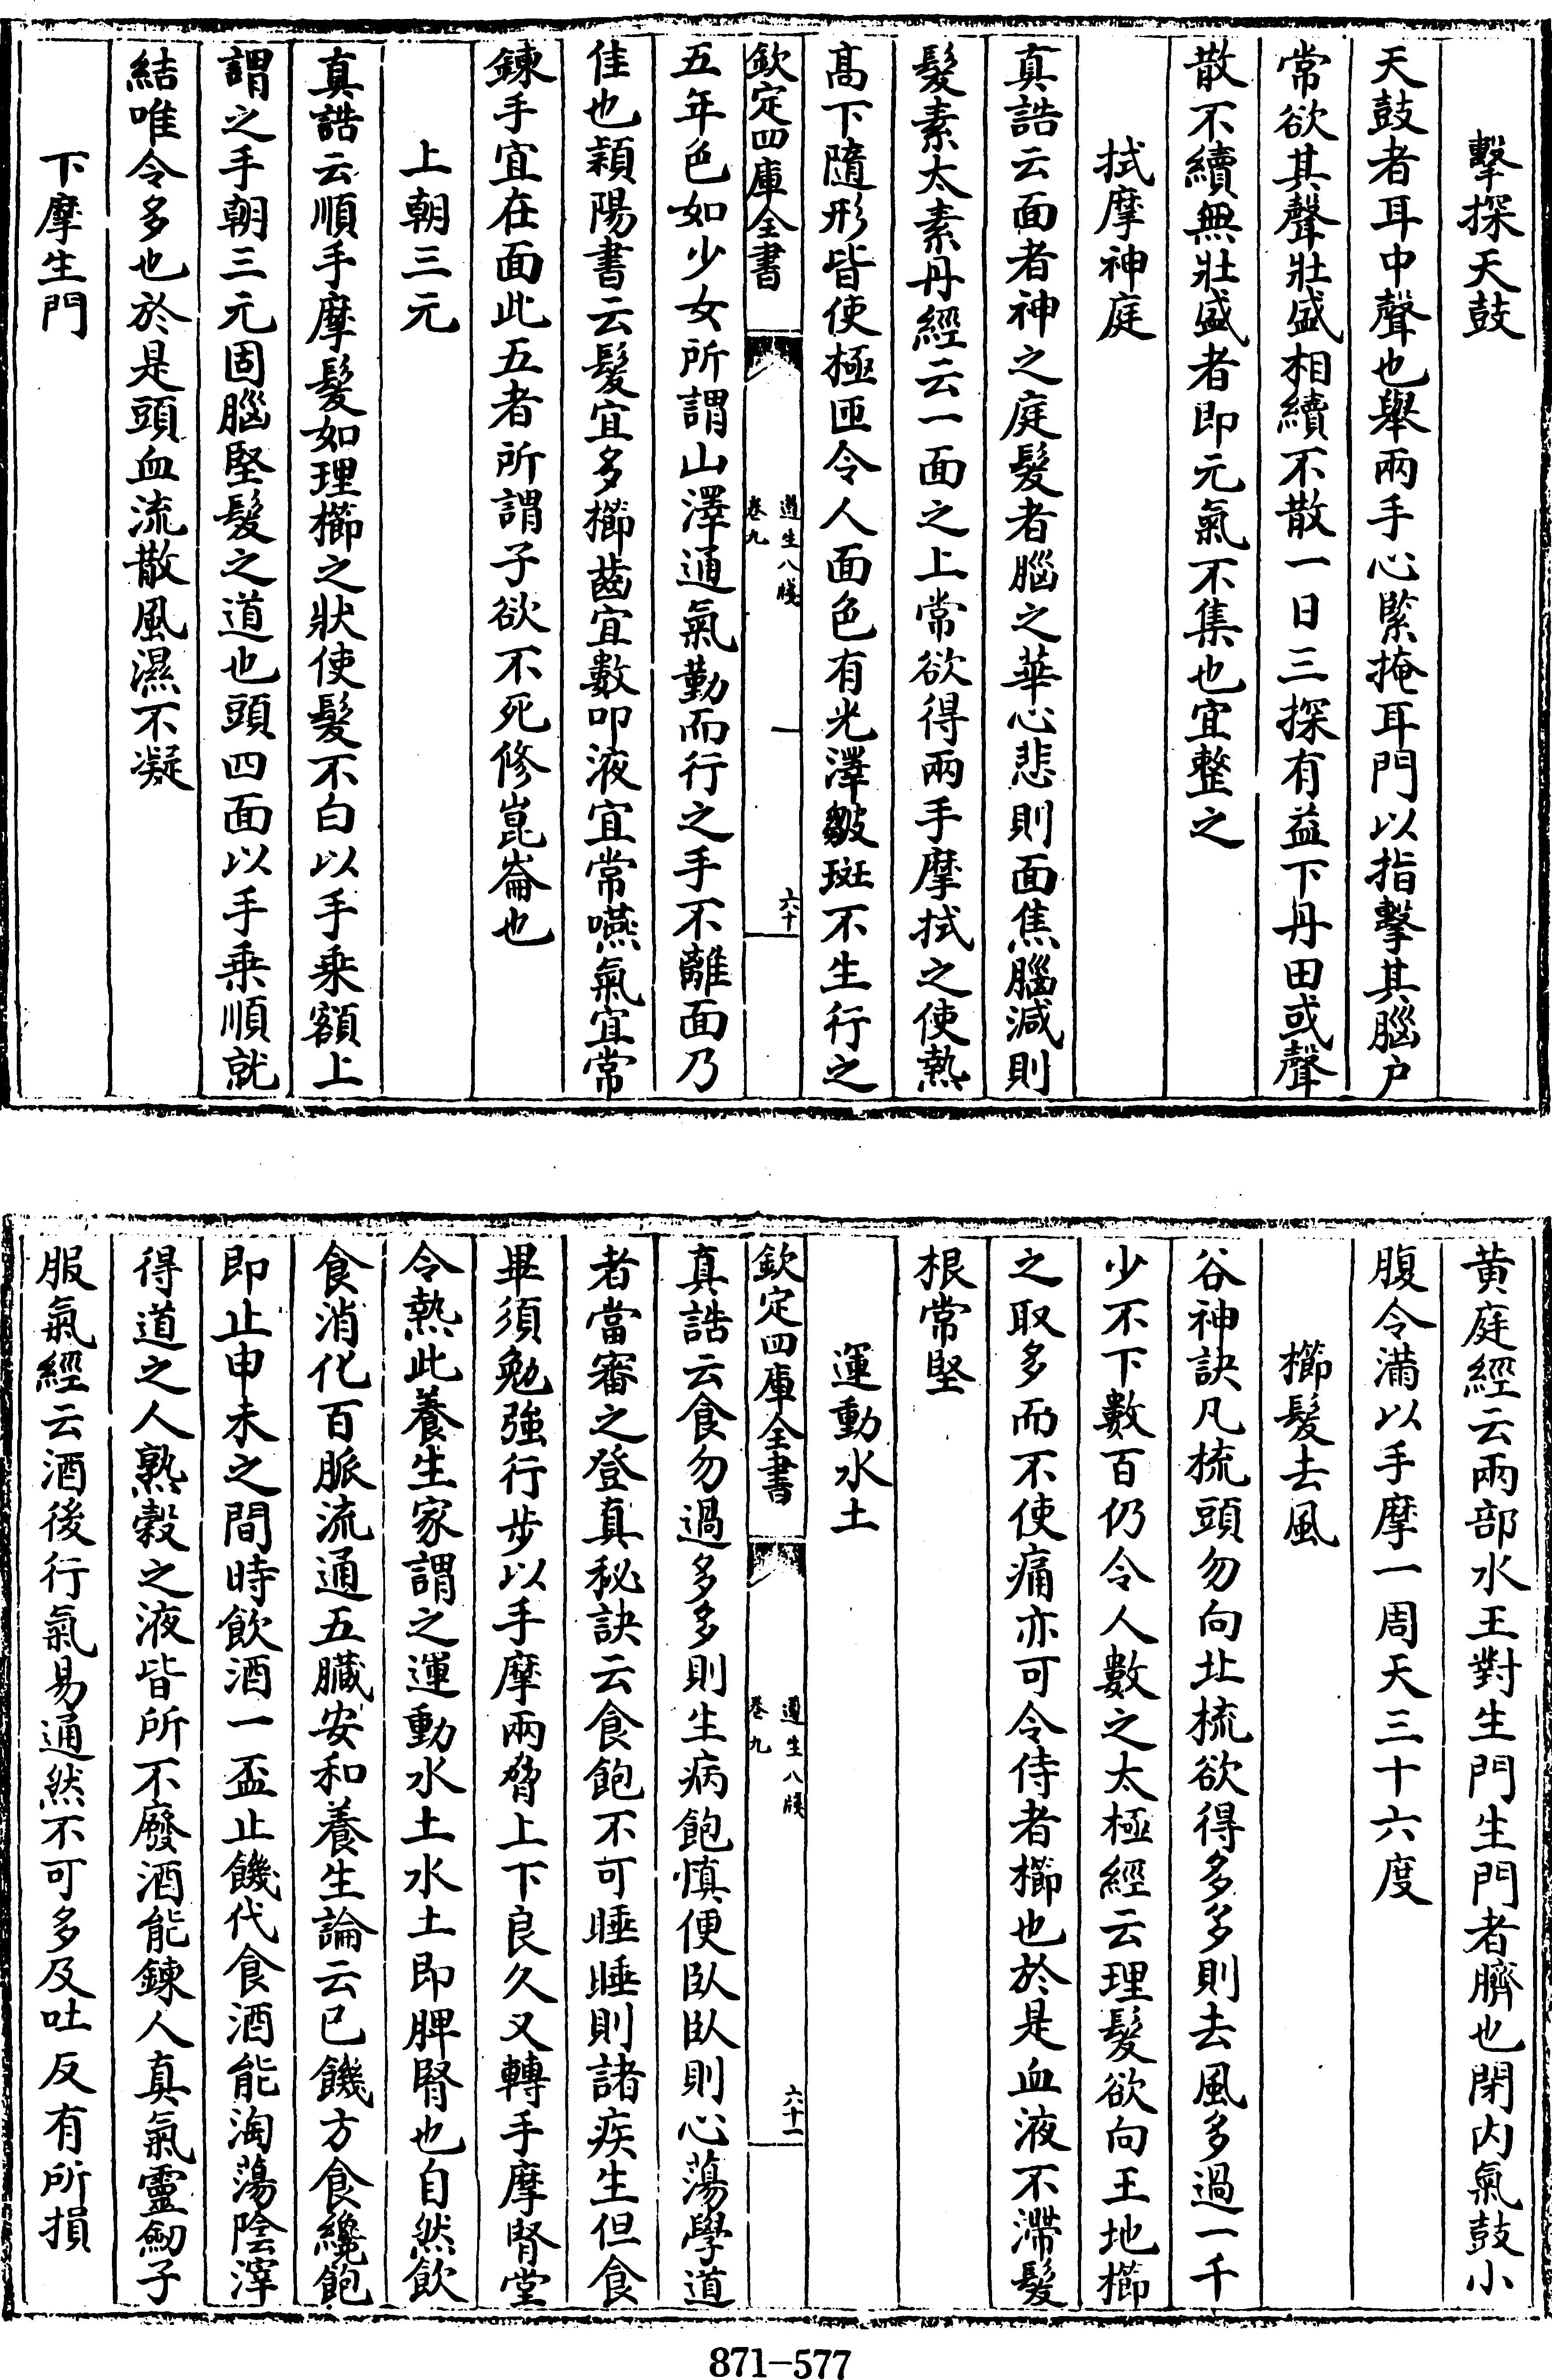 擊探天鼓
天鼓者耳中聲也舉兩手心緊掩耳門以指擊其腦户
常欲其聲壯盛相續不散一日三探有益下丹田或聲
散不續無壯盛者即元氣不集也宜整之
拭摩神庭
真誥云面者神之庭髮者腦之華心悲則面焦腦減則
髮素太素丹經云一面之上常欲得兩手摩拭之使熱
髙下隨形皆使極匝令人面色有光澤皺斑不生行之
欽定四庫全書
遵生八牋
卷九
一
六十
五年色如少女所謂山澤通氣勤而行之手不離面乃
佳也穎陽書云髮宜多櫛齒宜數叩液宜常嚥氣宜常
鍊手宜在面此五者所謂子欲不死修崑崙也
上朝三元
真誥云順手摩髮如理櫛之狀使髮不白以手乗額上
謂之手朝三元固腦堅髮之道也頭四面以手乗順就
結唯令多也於是頭血流散風濕不凝
下摩生門
黄庭經云兩部水王對生門生門者臍也閉内氣鼓小
腹令滿以手摩一周天三十六度
櫛髮去風
谷神訣凡梳頭勿向北梳欲得多多則去風多過一千
少不下數百仍令人數之太極經云理髮欲向王地櫛
之取多而不使痛亦可令侍者櫛也於是血液不滯髮
根常堅
運動水土
欽定四庫全書
遵生八牋
卷九
六十一
真誥云食勿過多多則生病飽慎便臥臥則心蕩學道
者當審之登真秘訣云食飽不可睡睡則諸疾生但食
畢須勉強行步以手摩兩脅上下良久又轉手摩腎堂
令熱此養生家謂之運動水土水土即脾腎也自然飲
食消化百脈流通五臟安和養生論云已饑方食纔飽
即止申未之間時飲酒一盃止饑代食酒能淘蕩陰滓
得道之人熟穀之液皆所不廢酒能鍊人真氣靈劒子
服氣經云酒後行氣易通然不可多及吐反有所損
871-577